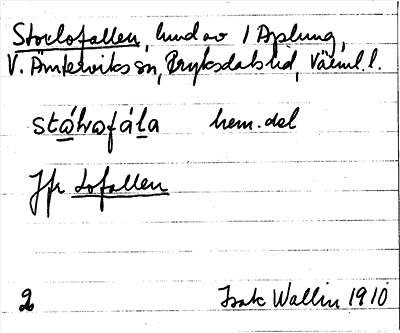 Storlofallen, hmd av 1 Aplung,
V. Ämterviks sn, Fryksdals hd, Värml. l.
hem. del
Jfr Lofallen
2 Isak Wallin 1910